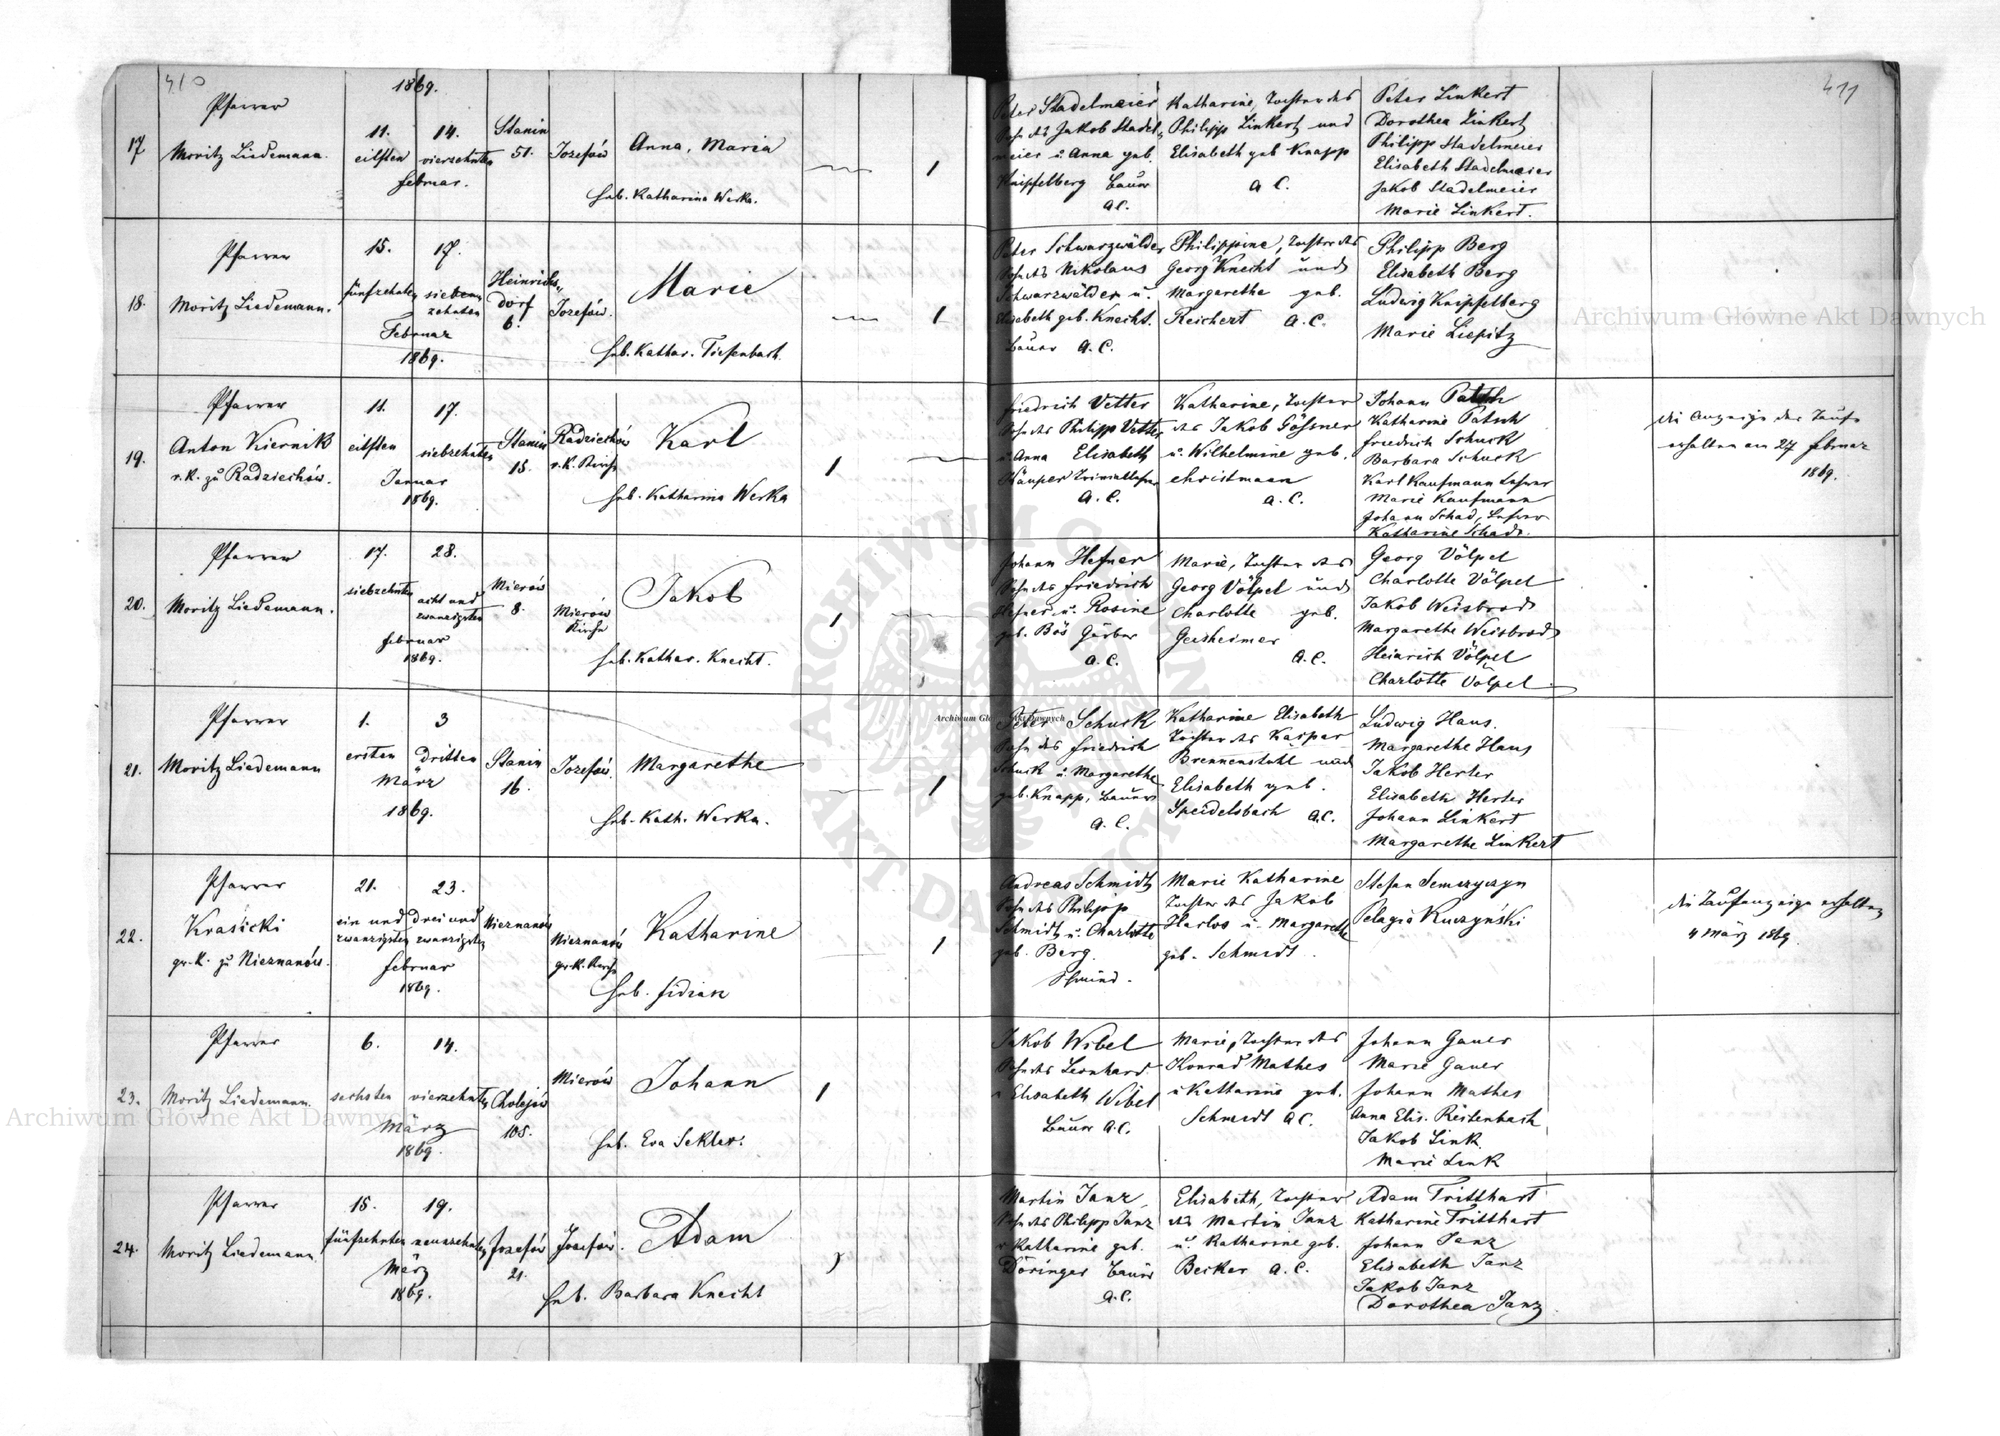 410
1869.
411
17
Pfarrer
Moritz Liedemann.
11.
eilften
14.
vierzehnten
Februar.
Stanin
51.
Jozefów
Anna, Maria
Heb. Katharina Werka.
1
Peter Stadelmeier
Sohn des Jakob Stadel,
meier u. Anna geb.
Knipfelberg Bauer
A.C.
Katharine, Tochter des
Philipp Linkert und
Elisabeth geb Knapp
A C.
Peter Linkert
Dorothea Linkert
Philipp Stadelmeier
Elisabeth Stadelmeier
Jakob Stadelmeier
Marie Linkert.
18.
Pfarrer
Moritz Liedemann.
15.
fünfzehnten
17.
sieben
zehnten
Februar
1869.
Heinrichs,,
dorf
6.
Jozefów.
Marie
Heb. Kathar. Tiefenbach.
1
Peter Schwarzwälder
Sohn des Nikolaus
Schwarzwälder u.
Elisabeth geb. Knecht.
Bauer A.C.
Philippine, Tochter des
Georg Knecht und
Margarethe geb.
Reichert A.C.
Philipp Berg
Elisabeth Berg
Ludwig Knipfelberg
Marie Liepitz
19.
Pfarrer
Anton Kiernik
r.K. zu Radziechów.
11.
eilften
17.
siebzehnten
Januar
1869.
Stanin
15.
Radziechów
r.K. Kirche
Karl
Heb. Katharina Werka
1
Friedrich Vetter
Sohn des Philipp Vetter
u Anna Elisabeth
A.C.
Katharine, Tochter
des Jakob Gößner
u. Wilhelmine geb.
Christmann
A.C.
Johann Patsch
Katharine Patsch
Friedrich Schuck
Barbara Schuck
Karl Kaufmann Lehrer
Marie Kaufmann
Johann Schad, Lehrer
Katharine Schad.
die Anzeige der Taufe
erhalten am 27 Februar
1869.
20.
Pfarrer
Moritz Liedemann.
17.
siebzehnten
28.
acht und
zwanzigsten
Februar
1869.
Mierów
8.
Mierów
Kirche
Jakob
Heb. Kathar. Knecht.
1
Johann Hefner
Sohn des Friedrich
Hefner u. Rosine
geb. Bös Gärber
A.C.
Marie, Tochter des
Georg Völpel und
Charlotte geb.
Gersheimer
A.C.
Georg Völpel
Charlotte Völpel
Jakob Weisbrod
Margarethe Weisbrod
Heinrich Völpel
Charlotte Völpel
21.
Pfarrer
Moritz Liedemann
1.
ersten
3
dritten
März
1869.
Stanin
16.
Jozefów.
Margarethe
Heb. Kath. Werka.
1
Peter Schuck
Sohn des Friedrich
Schuck u Margarethe
geb. Knapp, Bauer
A.C.
Katharine Elisabeth
Tochter des Kaspar
Brennenstuhl und
Elisabeth geb.
Speidelsbach A.C.
Ludwig Haus.
Margarethe Haus
Jakob Herter
Elisabeth Herter
Johann Linkert
Margarethe Linkert
22.
Pfarrer
Krasicki
gr.K. zu Nieznanów.
21.
ein und
zwanzigsten
23.
drei und
zwanzigsten
Februar
1869.
Nieznanów
Nieznanów
gr.K. Kirche
Katharine
Heb. Fidiak
1
Andreas Schmidt
Sohn des Philipp
Schmidt u. Charlotte
geb. Berg.
Marie Katharine
Tochter des Jakob
Harlos u. Margarethe
geb. Schmidt.
Stefan Semczyczyn
Pelagia Kuczyński
die Taufanzeige erhalten
4 März 1869.
23.
Pfarrer
Moritz Liedemann.
6.
sechsten
14.
vierzehnten
März
1869.
Cholejów
105.
Mierów
Johann
Heb. Eva Sekler.
1
Jakob Wibel
Sohn des Leonhard
u Elisabeth Wibel
Bauer A.C.
Marie, Tochter des
Konrad Mathes
u Katharine geb.
Schmidt A.C.
Johann Gauer
Marie Gauer
Johann Mathes
Anna Elis. Reitenbach
Jakob Link
Marie Link
24.
Pfarrer
Moritz Liedemann
15.
fünfzehnten
19.
neunzehnten
März
1869.
Jozefów
21.
Jozefów.
Adam
Heb. Barbara Knecht
1
Martin Janz
Sohn des Philipp Janz
u Katharine geb.
Döringer Bauer
A.C.
Elisabeth, Tochter
des Martin Janz
u. Katharine geb.
Becker A.C.
Adam Tritthart
Katharine Tritthart
Johann Janz
Elisabeth Janz
Jakob Janz
Dorothea Janz
Archiwum Główne Akt Dawnych
Archiwum Główne Akt Dawnych
Archiwum Główne Akt Dawnych
ARCHIWUM GŁÓWNE AKT DAWNYCH